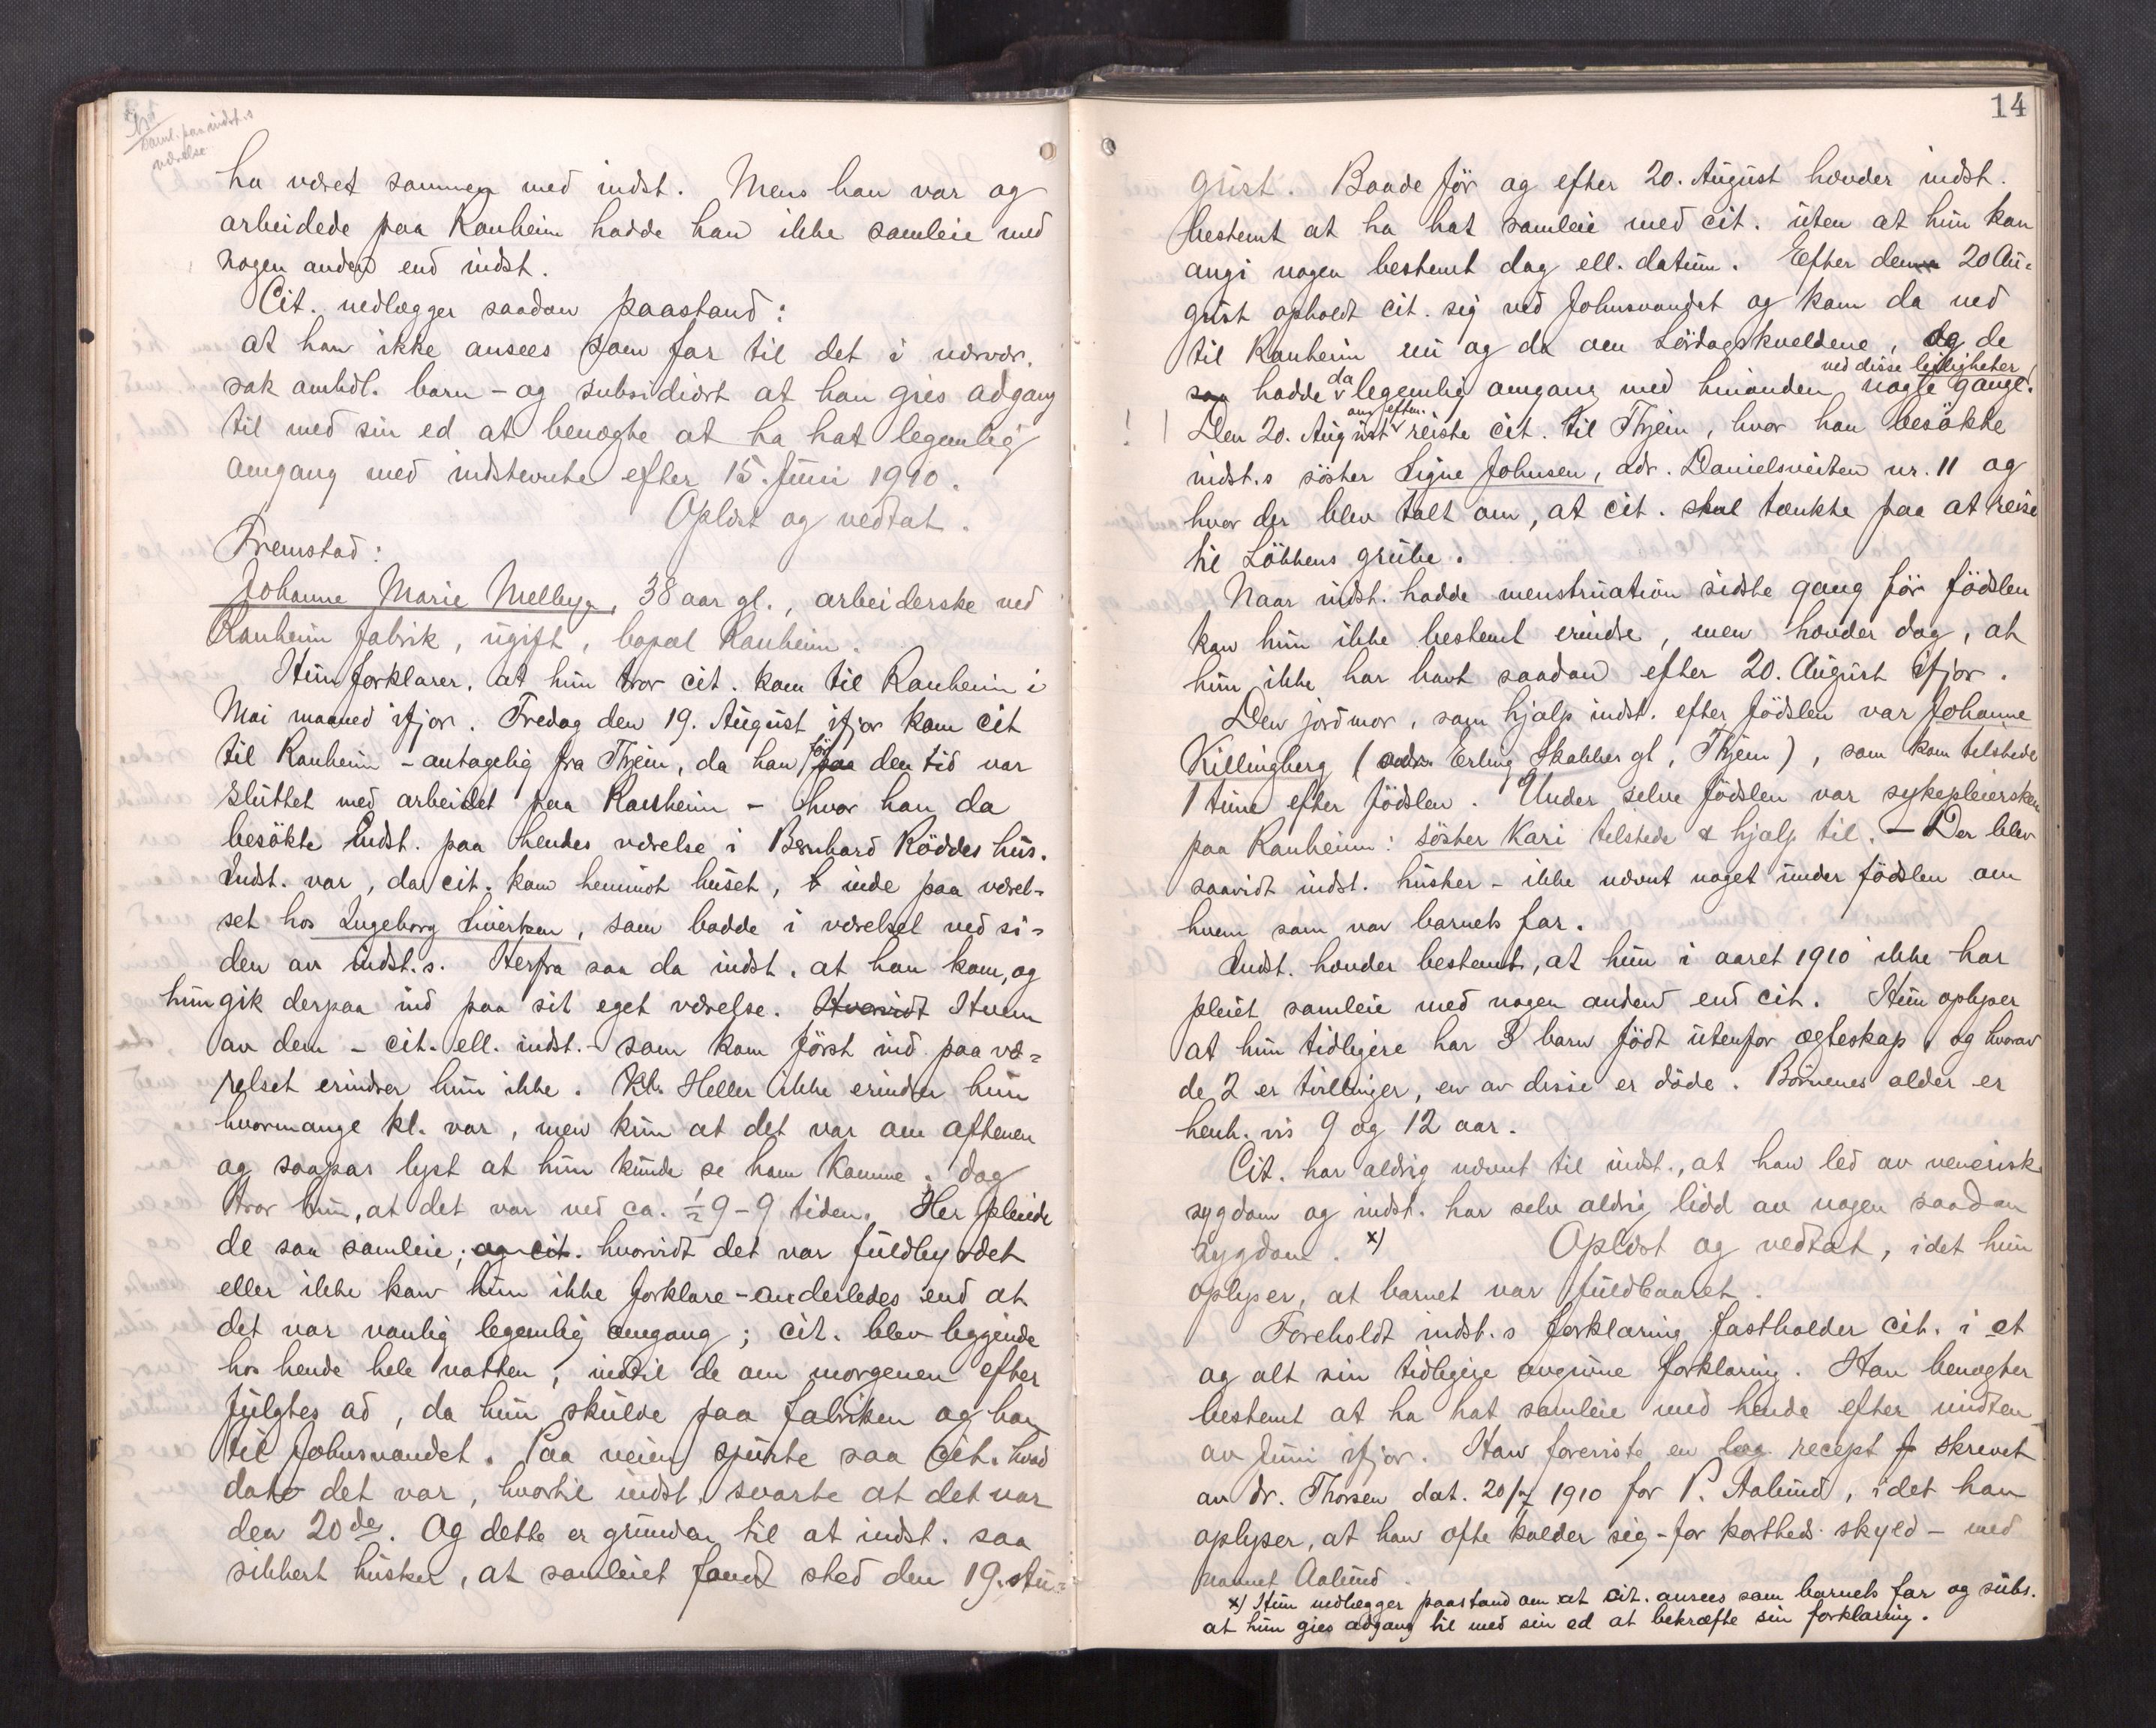 saml. paa indst.s
værelse
ha været sammen med indst. Mens han var og
arbeidede paa Ranheim hadde han ikke samleie med
nogen anden end indst.
Cit. nedlægger saadan paastand:
at han ikke ansees som far til det i nærvær.
sak omhdl. barn - og subsidiært at han gies adgang
til med sin ed at benægte at ha hat legemlig
omgang med indstevnte efter 15. Juni 1910.
Oplæst og vedtat.
Fremstod:
Johanne Marie Melbye, 38 aar gl., arbeiderske ved
Ranheim fabrik, ugift, bopæl Ranheim.
Hun forklarer, at hun tror cit. kom til Ranheim i
Mai maaned ifjor. Fredag den 19. August ifjor kom cit
til Ranheim - antagelig fra Thjem, da han før paa den tid var
sluttet med arbeidet paa Ranheim - hvor han da
besökte indst. paa hendes værelse i Bernhard Röddes hus.
Indst. var, da cit. kom henimot huset, b inde paa værel-
set hos Ingeborg Sivertsen, som bodde i værelset ved si-
den av indst.s. Herfra saa da indst. at han kom, og
hun gik derpaa ind paa sit eget værelse. Hvorvidt Hvem
av dem - cit. ell. indst. - som kom först ind paa væ-
relset erindrer hun ikke. Kl. Heller ikke erindrer hun
hvormange kl. var, men kun at det var om aftenen
og saapas lyst at hun kunde se ham komme; dog
tror hun, at det var ved ca. ½ 9 - 9 tiden. Her pleiede
de saa samleie; og cit. hvorvidt det var fuldbyrdet
eller ikke kan hun ikke forklare - anderledes end at
det var vanlig legemlig omgang; cit. blev liggende
hos hende hele natten, indtil de om morgenen efter
fulgtes ad, da hun skulde paa fabriken og han
til Johnsvandet. Paa veien spurte saa cit. hvad
dato det var, hvortil indst. svarte at det var
den 20de. Og dette er grunden til at indst. saa
sikkert husker, at samleiet fandt sted den 19. Au-
14
gust. Baade för og efter 20. August hævder indst.
bestemt at ha hat samleie med cit. uten at hun kan
angi nogen bestemt dag ell. datum. Efter denne 20 Au-
gust opholdt cit. sig ved Johnsvandet og kom da ned
til Ranheim nu og da om Lördagskveldene, og de
ved disse leiligheter
saa hadde da legemlig omgang med hinanden nogle gange.
ang. eftm.
!| Den 20. August reiste cit. til Thjem, hvor han besökte
indst.s söster Signe Johnsen, adr. Danielsveiten nr. 11 og
hvor der blev talt om, at cit. skul tænkte paa at reise
til Lökkens grube.
Naar indst. hadde menstruation sidste gang för födslen
kan hun ikke bestemt erindre, men hævder dog, at
hun ikke har havt saadan efter 20. August ifjor.
Den jordmor, som hjalp indst. efter födslen var Johanne
Killingberg (adr. Erling Skakkes gt, Thjem), som kom tilstede
1 time efter födslen. Under selve födslen var sykepleiersken
paa Ranheim: söster Kari tilstede & hjalp til. - Der blev
saavidt indst. husker - ikke nævnt noget under födslen om
hvem som var barnets far.
Indst. hævder bestemt, at hun i aaret 1910 ikke har
pleiet samleie med nogen anden end cit. Hun oplyser
at hun tidligere har 3 barn födt utenfor ægteskap, og hvorav
de 2 er tvillinger, en av disse er döde. Börnenes alder er
henh.vis 9 og 12 aar.
Cit. har aldrig nævnt til indst., at han led av venerisk
sygdom og indst. har selv aldrig lidd av nogen saadan
sygdom. x) Oplæst og vedtat, idet hun
oplyser, at barnet var fuldbaaret.
Foreholdt indst.s forklaring fastholder cit. i et
og alt sin tidligere avgivne forklaring. Han benægter
bestemt at ha hat samleie med hende efter midten
av Juni ifjor. Han foreviste en læg recept f skrevet
av dr. Thorsen dat. 20/7 1910 for P. Aalund, idet han
oplyser, at han ofte kalder sig - for kortheds skyld - med
navnet Aalund.
x) Hun nedlægger paastand om at cit. ansees som barnets far og subs.
at hun gies adgang til med sin ed at bekræfte sin forklaring.